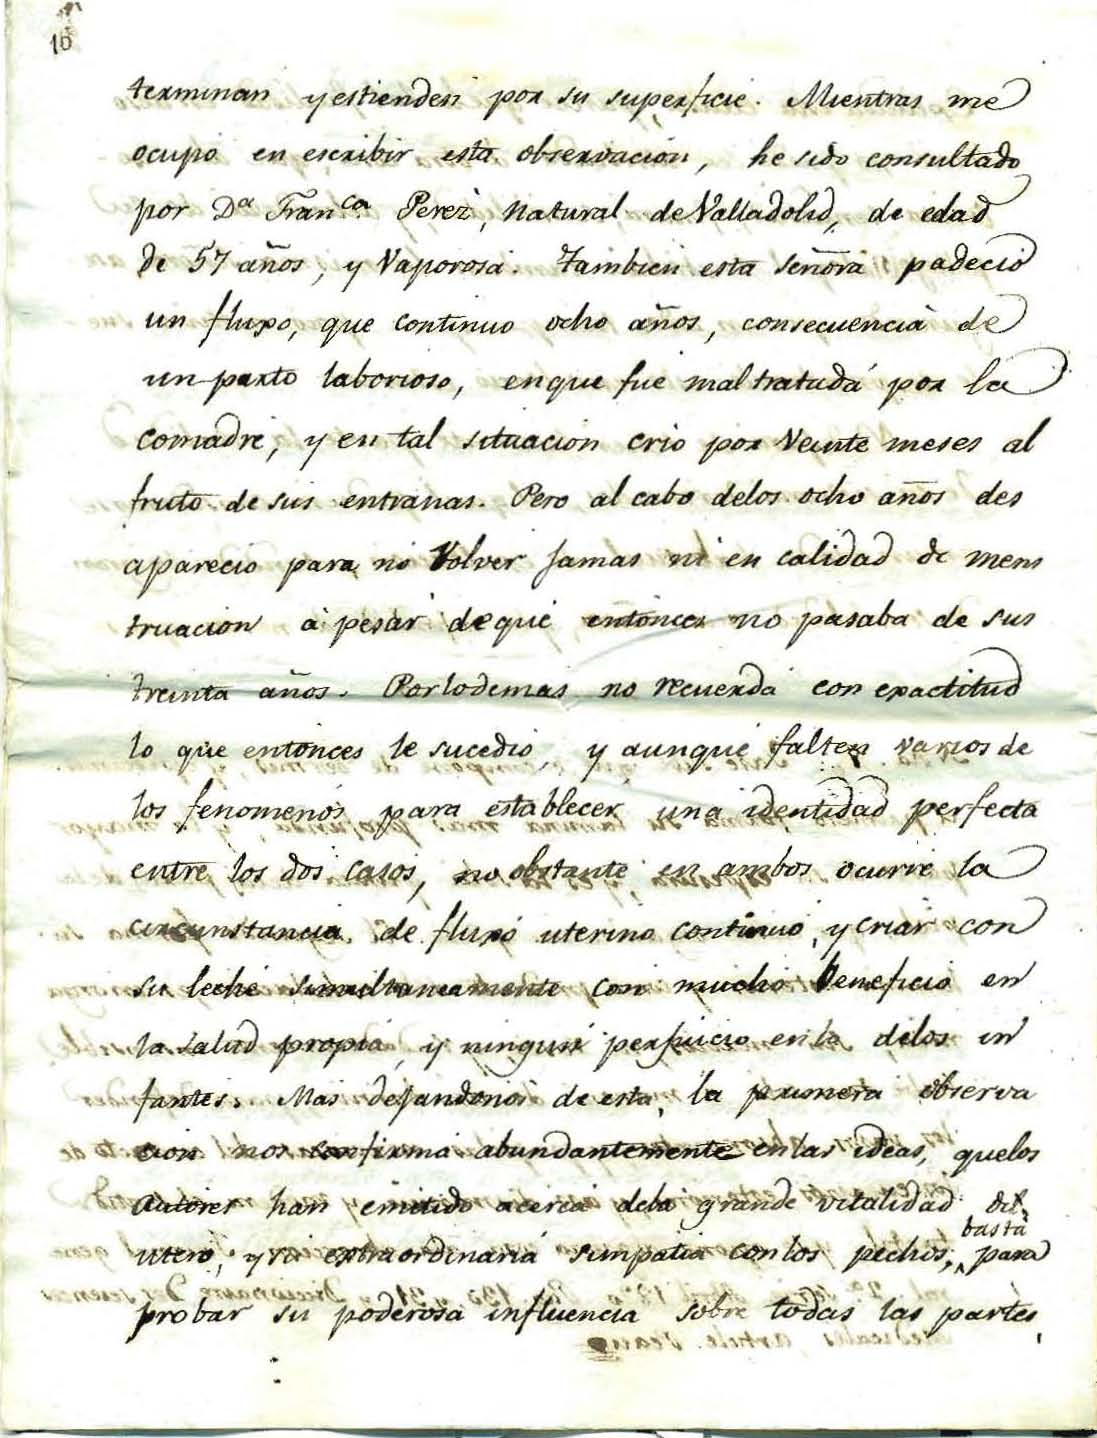 16
terminan y estienden por su superficie. Mientras me
ocupo en escribir esta observacion, he sido consultado
por Dª Franca. Perez, natural de Valladolid, de edad
de 57 años, y Vaporosa. Tambien esta señora padecio
un fluxo, que continuo ocho años, consecuencia de
un parto laborioso, enque fue maltratada por la
comadre, y en tal situacion crio por Veinte meses al
fruto de sus entranas. Pero al cabo delos ocho años des
aparecio para no Volver jamas ni en calidad de mens
truacion á pesar deque entonces no pasaba de sus
treinta años. Porlodemas no recuerda con exactitud
lo que entonces le sucedio, y aunque falten varios de
los fenomenos para establecer una identidad perfecta
entre los dos casos, no obstante en ambos ocurre la
circunstancia de fluxo uterino continuo, y criar con
su leche simultaneamente con mucho beneficio en
la salud propia, y ningun perjuicio en la delos in
fantes. Mas dejandonos de esta, la primera observa
cion nos confirma abundantemente en las ideas, quelos
autores han emitido acerca dela grande vitalidad del
utero, y su extraordinaria simpatia con los pechos, basta para
probar su poderosa influencia sobre todas las partes,